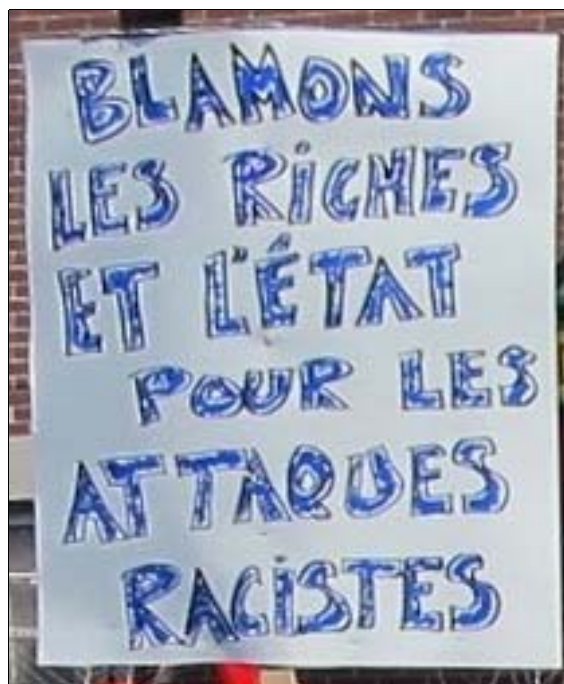 BLAMONS
LES RiCHES
ET L'ÉTAT
POUR LES
ATTAQUES
RACiSTES